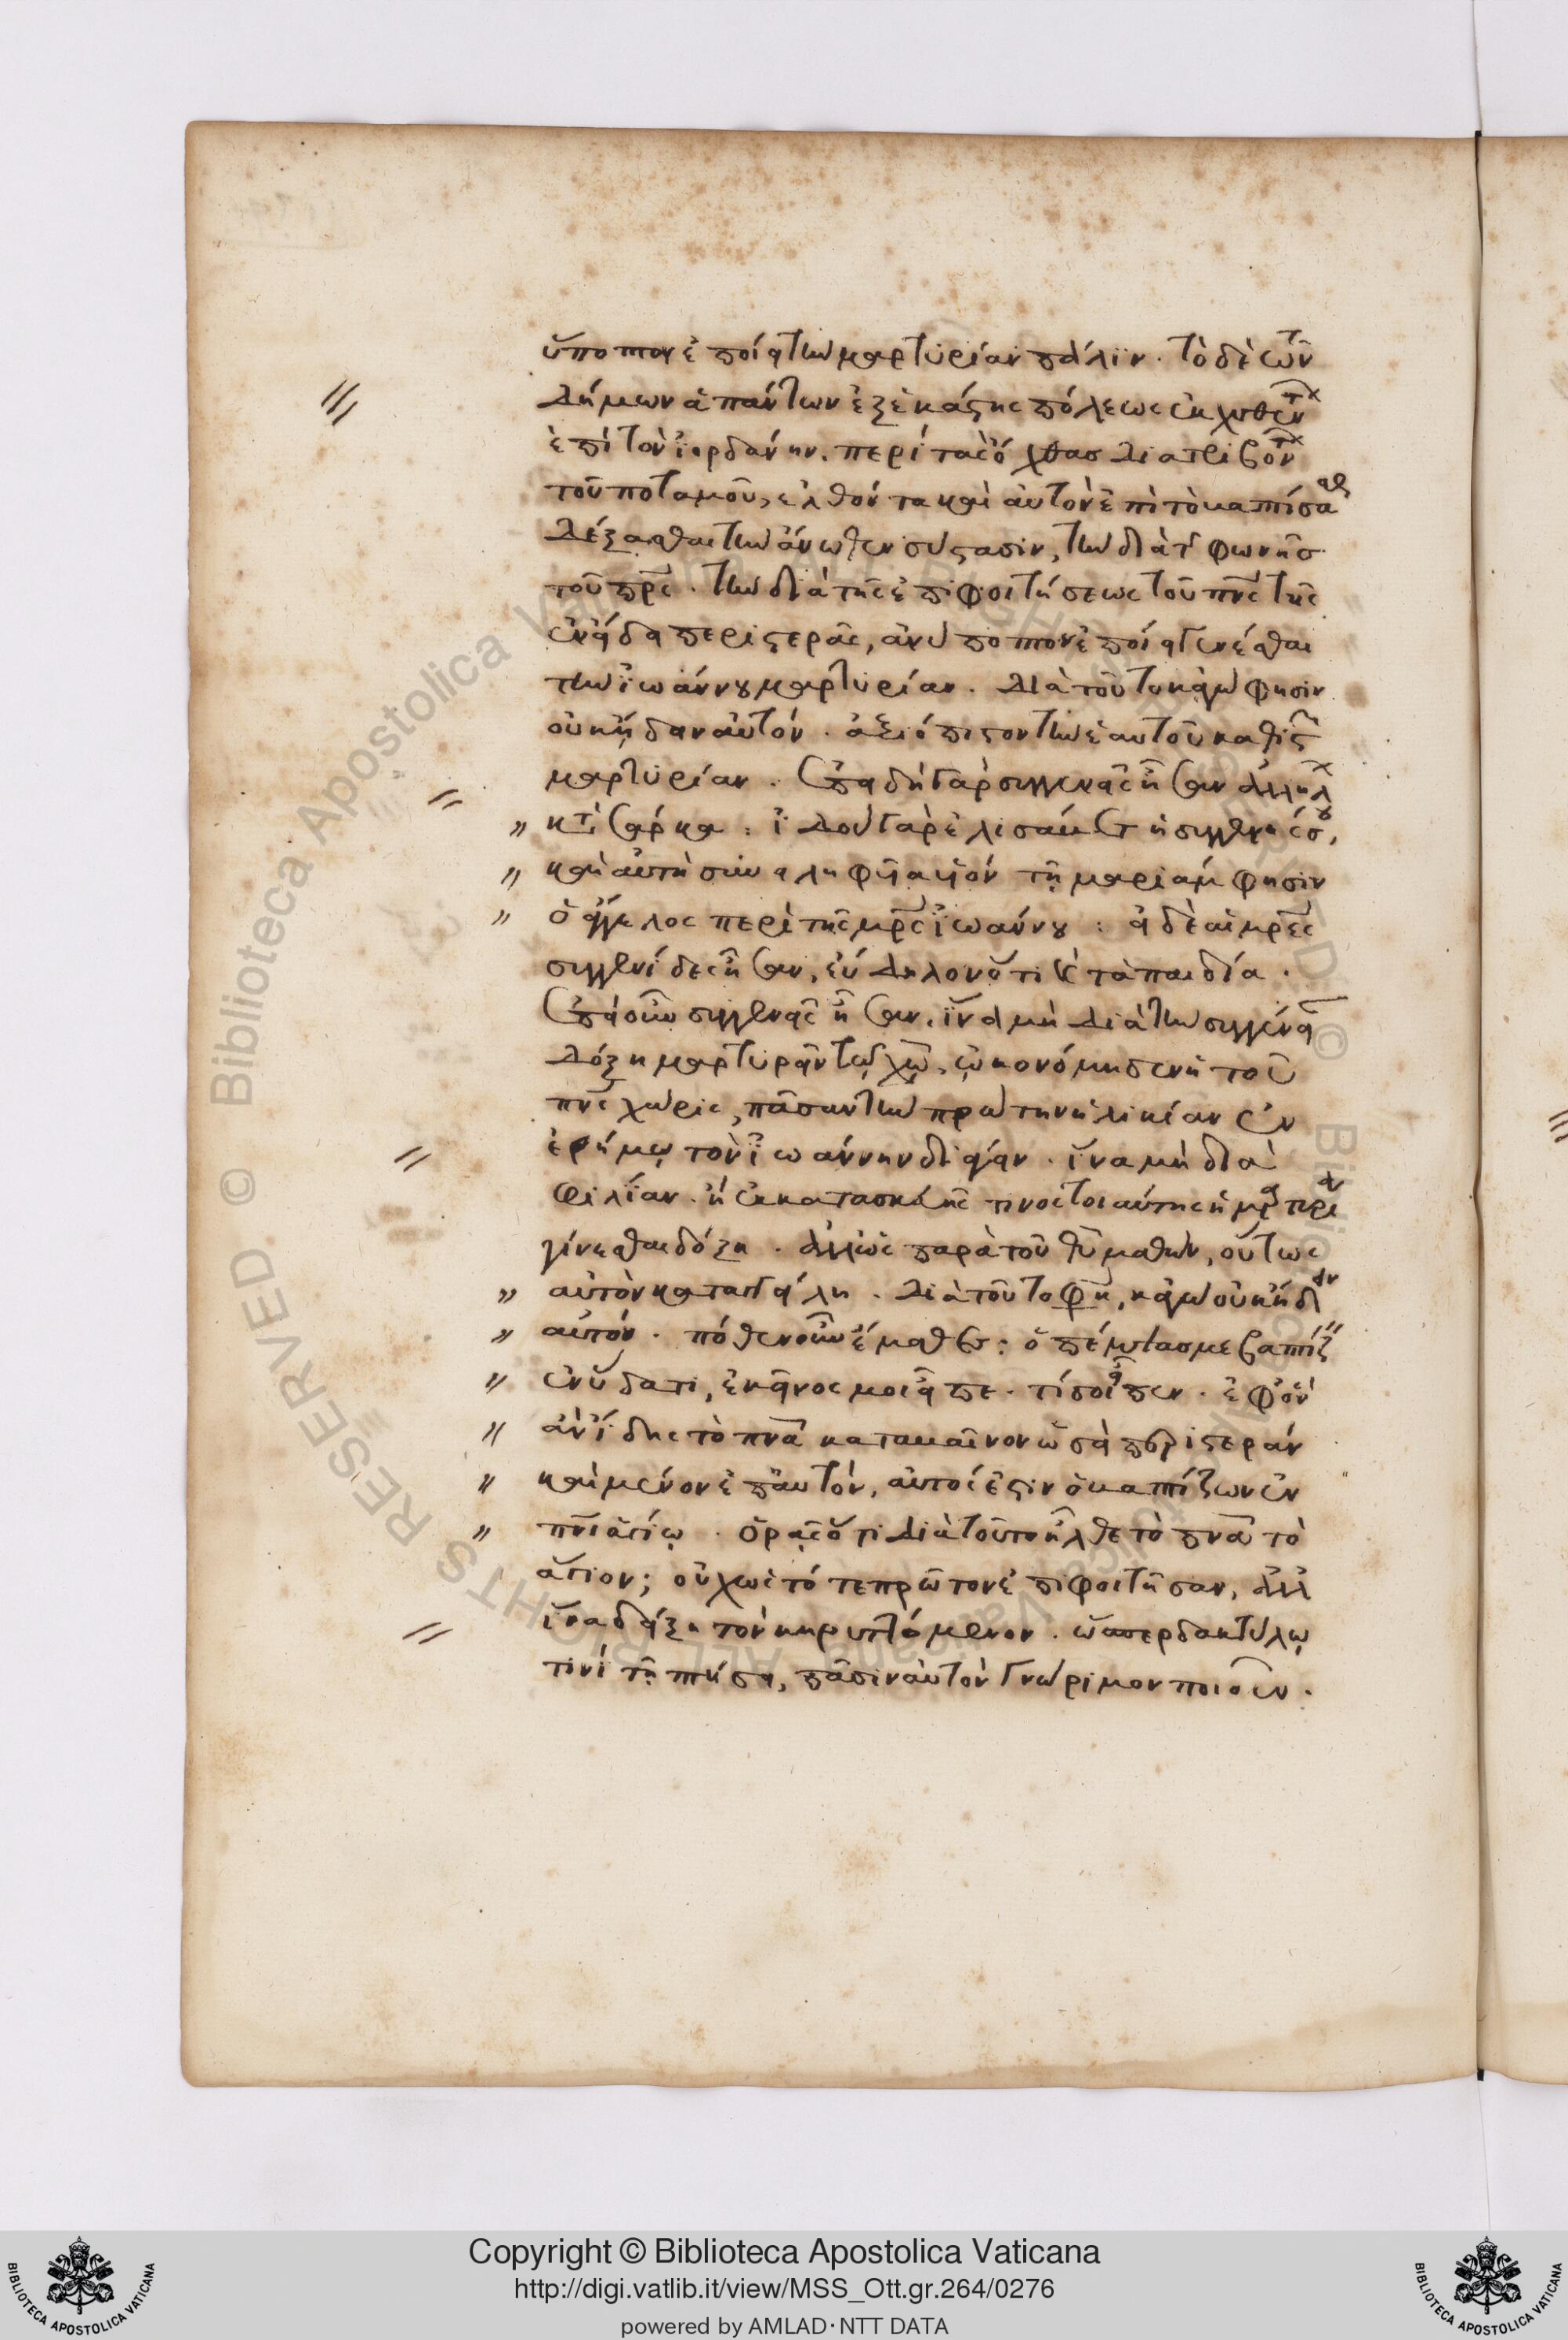 ὕποπτον ἐποίει τὴν μαρτυρίαν πάλιν. τὸ δὲ τῶν
δήμων ἁπάντων ἐξ ἑκάστης πόλεως ἐκχυθέντων
ἐπὶ τὸν ἰορδάνην. περὶ τὰς ὄχθας διατριβόντων
τοῦ ποταμοῦ, ἐλθόντα καὶ αὐτὸν ἐπὶ τὸ βαπτίσασθαι
δέξασθαι τὴν ἄνωθεν σύστασιν, τὴν διὰ τῆς φωνῆς
τοῦ πρς. τὴν διὰ τῆς ἐπιφοιτήσεως τοῦ πνς τῆς
ἐν εἴδει περιστερᾶς, ἀνύποπτον ἐποίει γενέσθαι
τὴν ἰωάννου μαρτυρίαν. διὰ τοῦτο κἀγὼ φησὶν
οὐκ ἤδειν αὐτόν. ἀξιόπιστον τὴν ἑαυτοῦ καθιστῶν
μαρτυρίαν. ἐπειδὴ γὰρ συγγενεῖς ἦσαν ἀλλήλων
κατὰ σάρκα: ἰδοὺ γὰρ ἐλισάβετ ἡ συγγενής σου,
καὶ αὐτὴ συνειληφυῖα υἱόν τῇ μαριάμ φησιν
ὁ ἄγγελος περὶ τῆς μρς ἰωάννου: εἰ δὲ αἱ μρες
συγγενίδες ἦσαν, εὔδηλον ὅτι καὶ τὰ παιδία.
ἐπεὶ οὖν συγγενεῖς ἦσαν, ἵνα μὴ διὰ τὴν συγγένειαν
δόξῃ μαρτυρεῖν τῷ χῷ, ᾠκονόμησεν ἡ τοῦ
πνς χάρις, πᾶσαν τὴν πρώτην ἡλικίαν ἐν
ἐρήμῳ τὸν ἰωάννην διάγειν. ἵνα μὴ διὰ
φιλίαν. ἢ ἐκ κατασκευῆς τινος τοιαύτης ἡ μαρτυρία
γίνεσθαι δόξῃ. ἀλλ' ὡς παρὰ τοῦ θυ μαθών, οὕτως
αὐτὸν καταγγείλῃ. διὰ τοῦτό φη, κἀγὼ οὐκ ᾔδειν
αὐτόν. πόθεν οὖν ἔμαθες: ὁ πέμψας με βαπτίζειν
ἐν ὕδατι, ἐκεῖνος μοι εἶπε. τί σοι εἶπεν. ἐφ' ὃν
ἂν ἴδῃς τὸ πνα καταβαῖνον ὡσεὶ περιστερὰν
καὶ μένον ἐπ' αὐτόν, αὐτός ἐστιν ὁ βαπτίζων ἐν
πνι ἁγίῳ. ὁρᾷς ὅτι διὰ τοῦτο ἦλθε τὸ πνα τὸ
ἅγιον; οὐχ ὡς τότε πρῶτον ἐπιφοιτῆσαν, ἀλλ'
ἵνα δείξῃ τὸν κηρυττόμενον. ὥσπερ δακτύλῳ
τινὶ τῇ πτήσει, πᾶσιν αὐτὸν γνώριμον ποιοῦν.
Copyright © Biblioteca Apostolica Vaticana
http://digi.vatlib.it/view/MSS_Ott.gr.264/0276
powered by AMLAD·NTT DATA